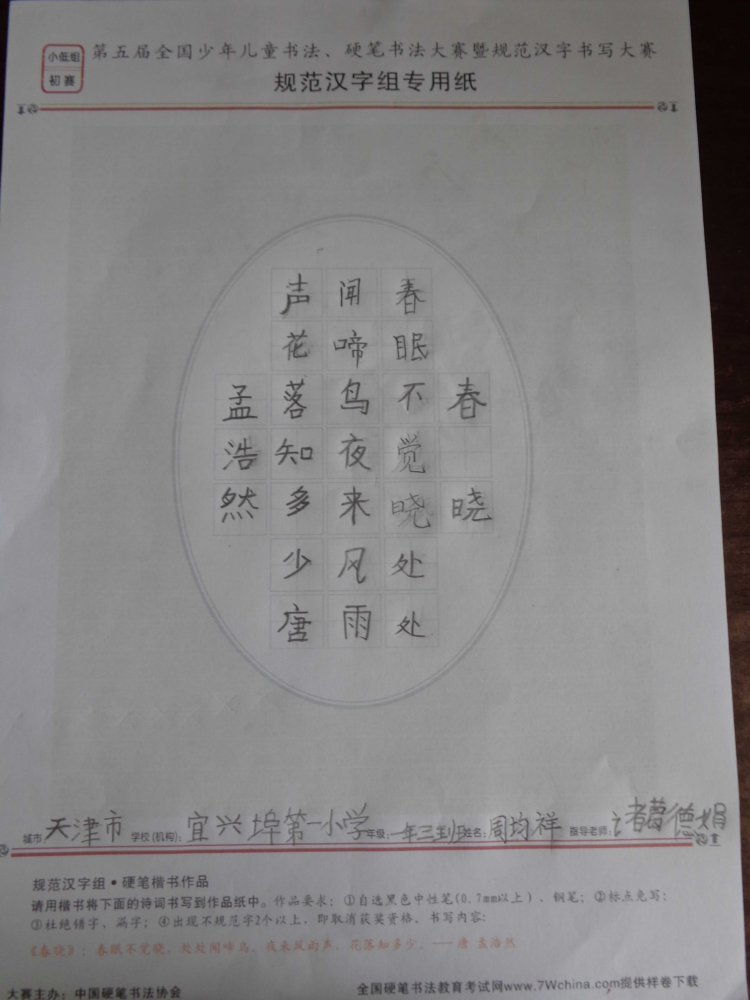 小低组
初赛
第五届全国少年儿童书法、硬笔书法大赛暨规范汉字书写大赛
规范汉字组专用纸
春晓
春眠不觉晓处处
闻啼鸟夜来风雨
声花落知多少唐
孟浩然
城市:天津市 学校(机构):宜兴埠第一小学 年级:一年三班 姓名:周均祥 指导老师:诸葛德娟
规范汉字组•硬笔楷书作品
请用楷书将下面的诗词书写到作品纸中。作品要求:①自选黑色中性笔(0.7mm以上)、钢笔;②标点免写;
③杜绝错字、漏字;④出现不规范字2个以上,即取消获奖资格、书写内容:
《春晓》:春眠不觉晓,处处闻啼鸟。夜来风雨声,花落知多少。——唐 孟浩然
大赛主办:中国硬笔书法协会
全国硬笔书法教育考试网www.7Wchina.com提供样卷下载